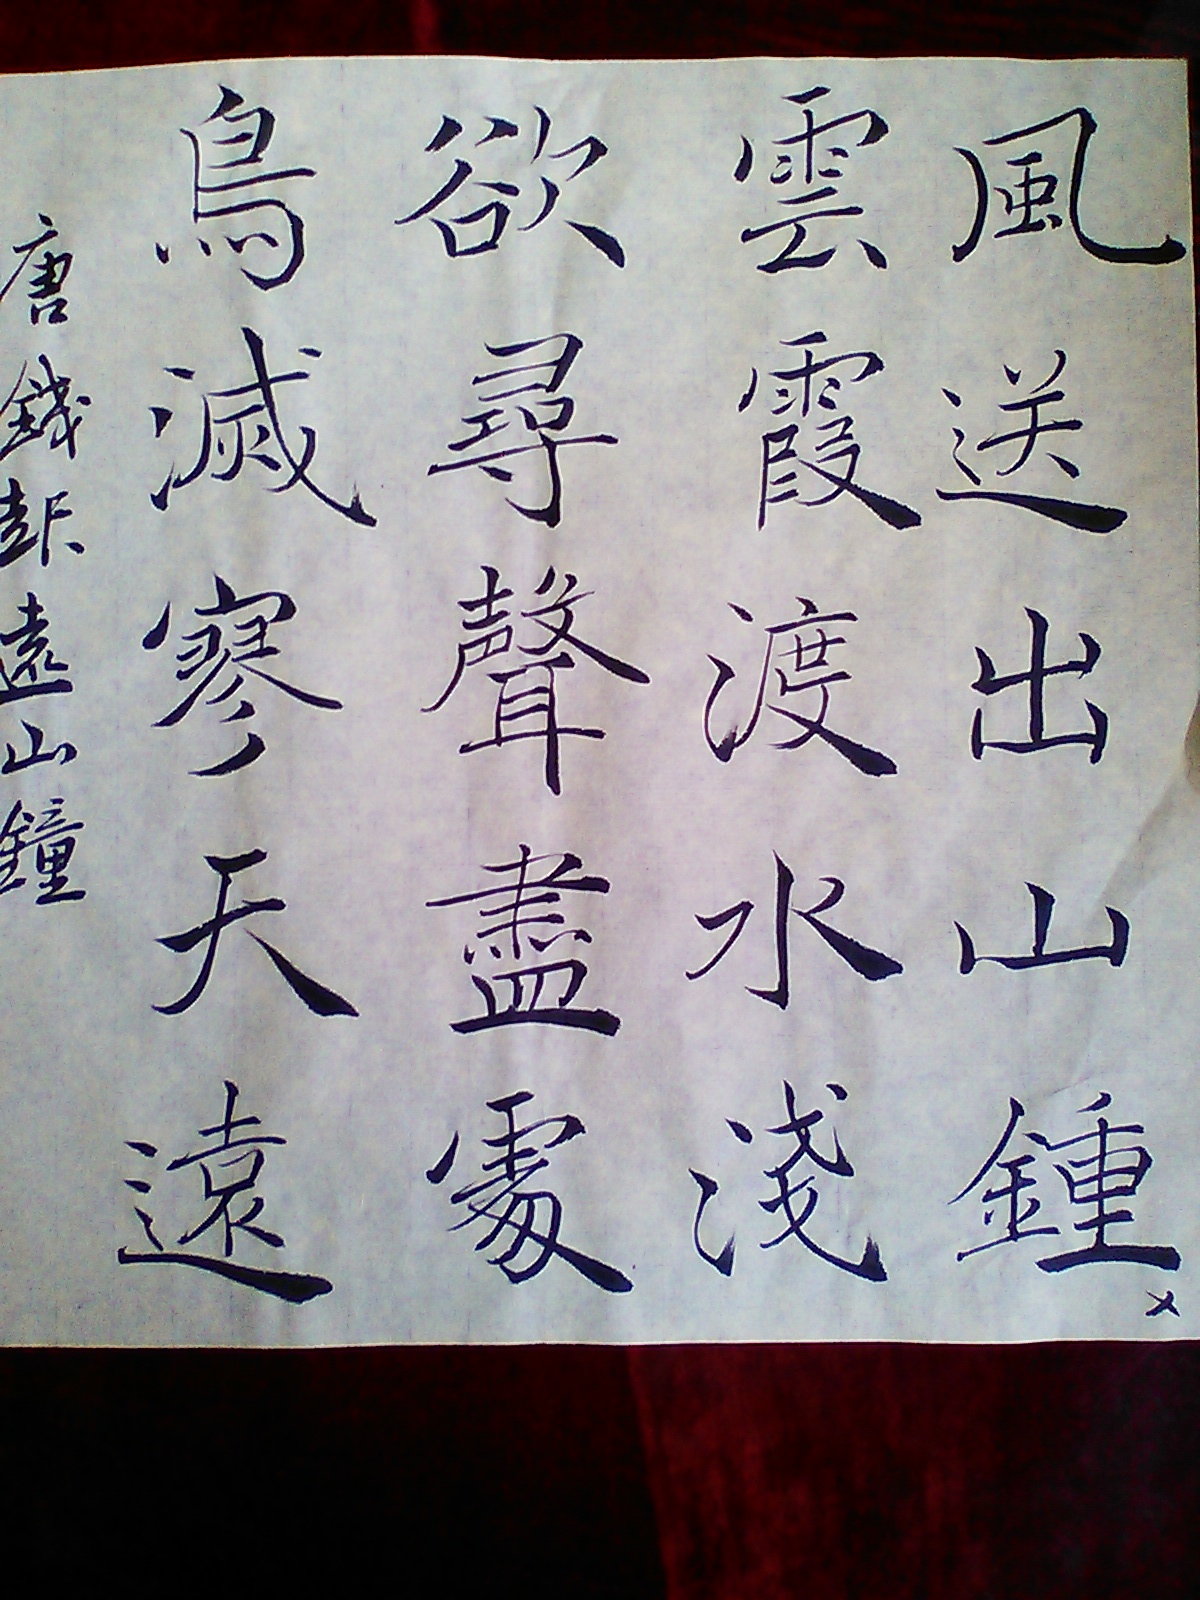 風送出山鍾
雲霞渡水淺
欲尋聲盡處
鳥滅寥天遠
唐錢起遠山鐘